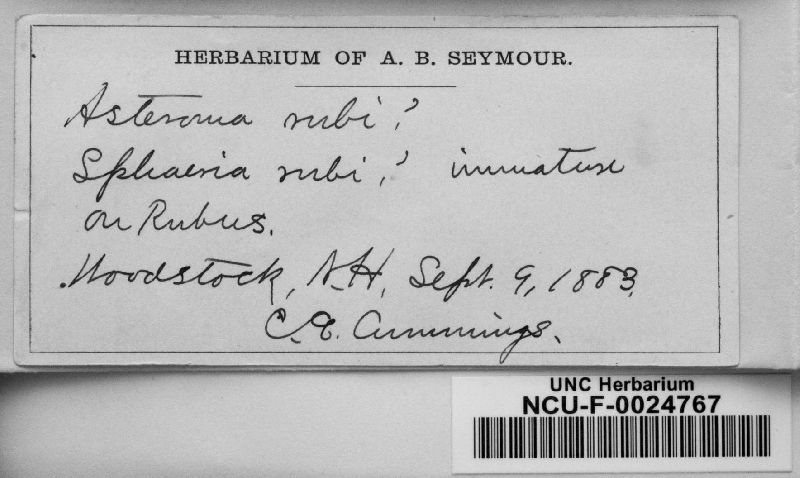 HERBARIUM OF A. B. SEYMOUR.
Asteroma rubi?
Sphaeria rubi? immature
on Rubus.
Woodstock, N.H. Sept. 9, 1883.
C. E. Cummings.
UNC Herbarium
NCU-F-0024767